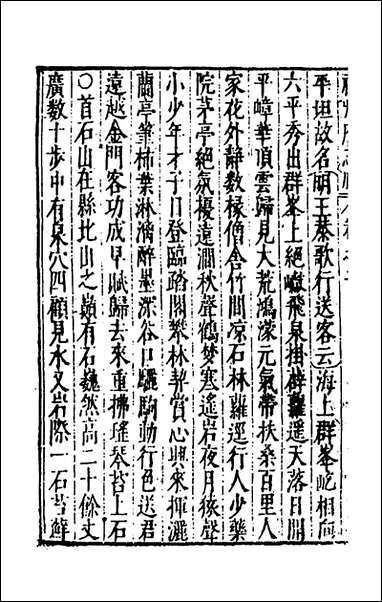 平坦故名明王恭歌行送客云海上群峯屹相向
六平秀出群峯上絕巘飛泉掛薜蘿遥天落日開
平嶂華頂雲歸見大荒鴻濛元氣帶扶桑百里人
家花外靜數椽僧舎竹間凉石林蘿逕行人少藥
院茅亭絕氛擾遠澗秋聲鶴夢寒遥岩夜月猿聲
小少年才子日登臨踏閣攀林契賞心興來揮灑
蘭亭筆柿葉淋漓醉墨深谷口驪駒動行色送君
遠越金門客功成早賦歸去來重拂瑤琴苔上石
○首石山在縣北山之巔有石巍然高二十餘丈
廣数十步中有泉穴四顧見水又岩際一石苔蘚